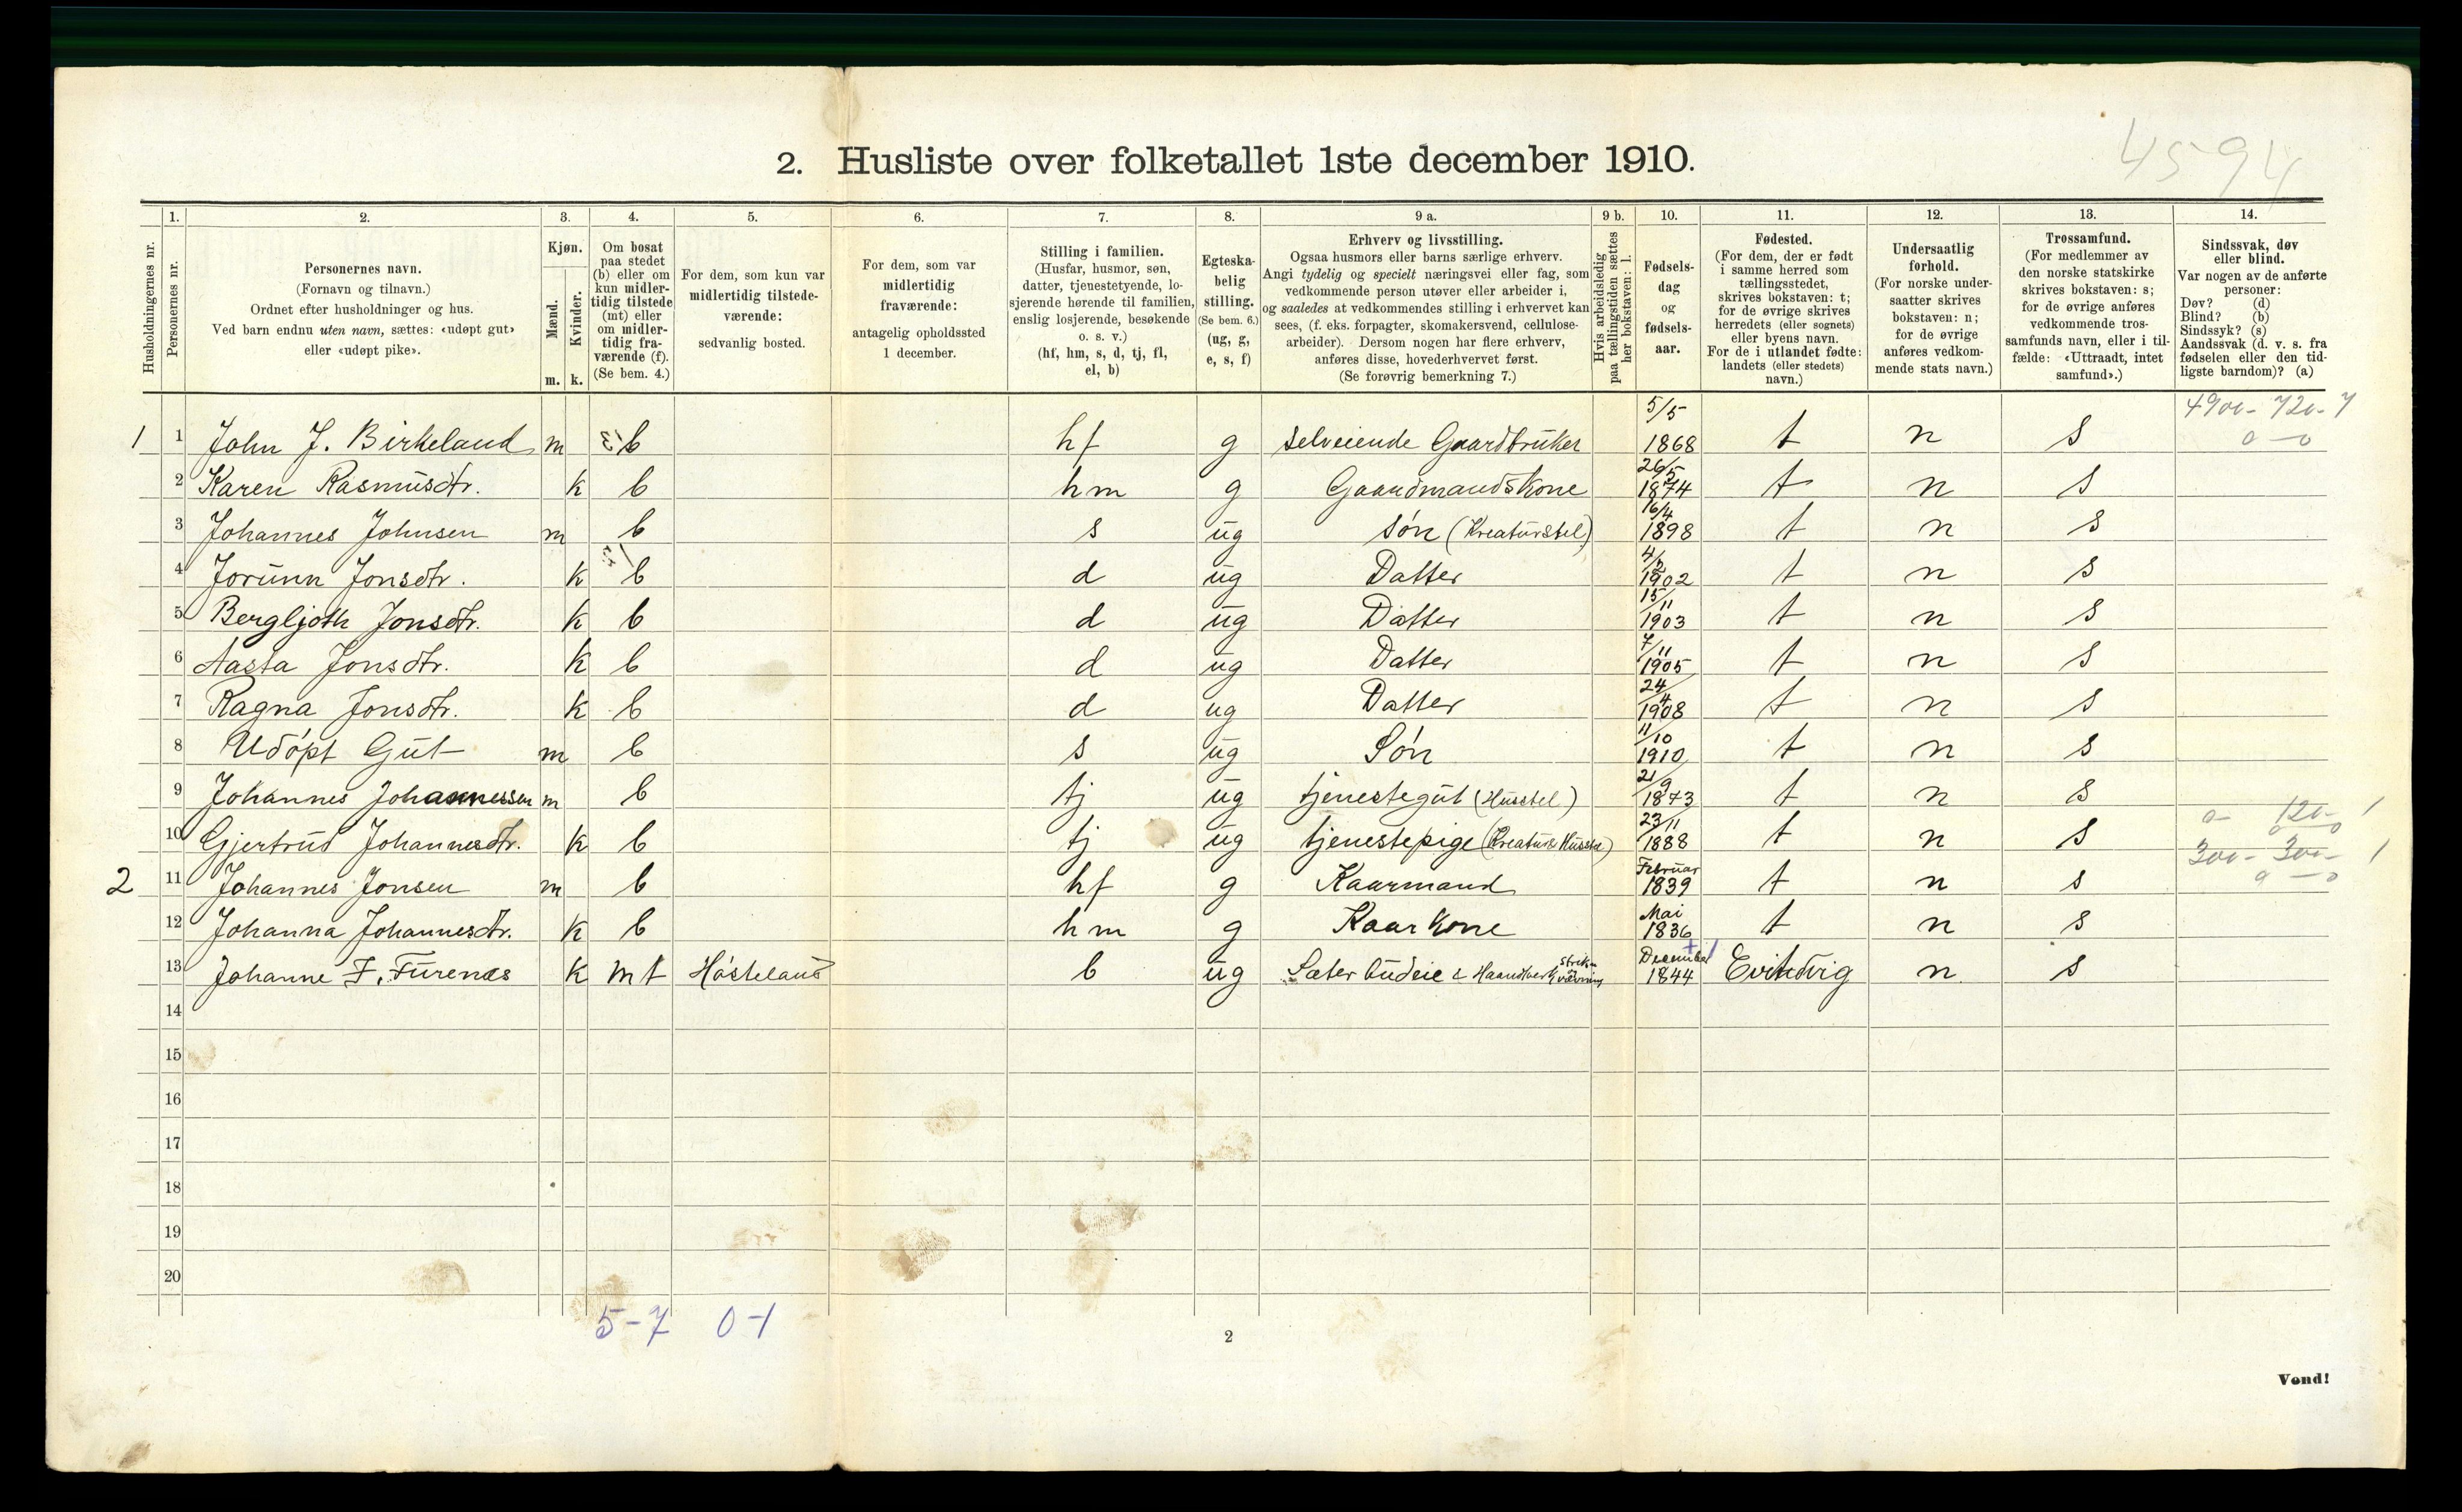 4594
2. Husliste over folketallet 1ste december 1910.
1. 2. 3. 4. 5. 6. 7. 8. 9 a. 9 b. 10. 11. 12. 13. 14.
Husholdningernes nr.
Personernes nr.
Personernes navn.
(Fornavn og tilnavn.)
Ordnet efter husholdninger og hus.
Ved barn endnu uten navn, sættes: «udøpt gut»
eller «udøpt pike».
Kjøn.
Mænd.
Kvinder.
m. k.
Om bosat
paa stedet
(b) eller om
kun midler-
tidig tilstede
(mt) eller
om midler-
tidig fra-
værende (f).
(Se bem. 4.)
For dem, som kun var
midlertidig tilstede-
værende:
sedvanlig bosted.
For dem, som var
midlertidig
fraværende:
antagelig opholdssted
1 december.
Stilling i familien.
(Husfar, husmor, søn,
datter, tjenestetyende, lo-
sjerende hørende til familien,
enslig losjerende, besøkende
o. s. v.)
(hf, hm, s, d, tj, fl,
el, b)
Egteska-
belig
stilling.
(Se bem. 6.)
(ug, g,
e, s, f)
Erhverv og livsstilling.
Ogsaa husmors eller barns særlige erhverv.
Angi tydelig og specielt næringsvei eller fag, som
vedkommende person utøver eller arbeider i,
og saaledes at vedkommendes stilling i erhvervet kan
sees, (f. eks. forpagter, skomakersvend, cellulose-
arbeider). Dersom nogen har flere erhverv,
anføres disse, hovederhvervet først.
(Se forøvrig bemerkning 7.)
Hvis arbeidsledig
paa tællingstiden sættes
her bokstaven: l.
Fødsels-
dag
og
fødsels-
aar.
Fødested.
(For dem, der er født
i samme herred som
tællingsstedet,
skrives bokstaven: t;
for de øvrige skrives
herredets (eller sognets)
eller byens navn.
For de i utlandet fødte:
landets (eller stedets)
navn.)
Undersaatlig
forhold.
(For norske under-
saatter skrives
bokstaven: n;
for de øvrige
anføres vedkom-
mende stats navn.)
Trossamfund.
(For medlemmer av
den norske statskirke
skrives bokstaven: s;
for de øvrige anføres
vedkommende tros-
samfunds navn, eller i til-
fælde: «Uttraadt, intet
samfund».)
Sindssvak, døv
eller blind.
Var nogen av de anførte
personer:
Døv? (d)
Blind? (b)
Sindssyk? (s)
Aandssvak (d. v. s. fra
fødselen eller den tid-
ligste barndom)? (a)
4900- 720- 7
0 - 0
1 1 John J. Birkeland m b hf g selveiende Gaardbruker 5/5 1868 t n s
2 Karen Rasmusdtr. k b hm g Gaardmandskone 26/5 1874 t n s
3 Johannes Johnsen m b s ug søn (Kreaturstel) 16/4 1898 t n s
4 Jorunn Jonsdtr. k b d ug Datter 1902 t n s
5 Bergljoth Jonsdtr. k b d ug Datter 15/11 1903 t n s
6 Aasta Jonsdtr. k b d ug Datter 7/11 1905 t n s
7 Ragna Jonsdtr. k b d ug Datter 24/4 1908 t n s
8 Udöpt Gut m b s ug Søn 11/10 1910 t n s
9 Johannes Johannessen m b tj ug tjenestegut (Husstel) 21/9 1873 t n s
0- 120- 1
0 - 0
10 Gjertrud Johannesdtr. k b tj ug tjenestepige 23/11 1888 t n s
300- 300- 1
0 - 0
2 11 Johannes Jonsen m b hf g Kaarmand Februar 1839 t n s
12 Johanna Johannesdtr. k b hm g Kaarkone Mai 1836 t n s
13 Johanne F. Furenæs k mt Hösteland b ug December 1844 Evindvig n s
14
15
16
17
18
19
20
5-7 0-1
2
Vend!